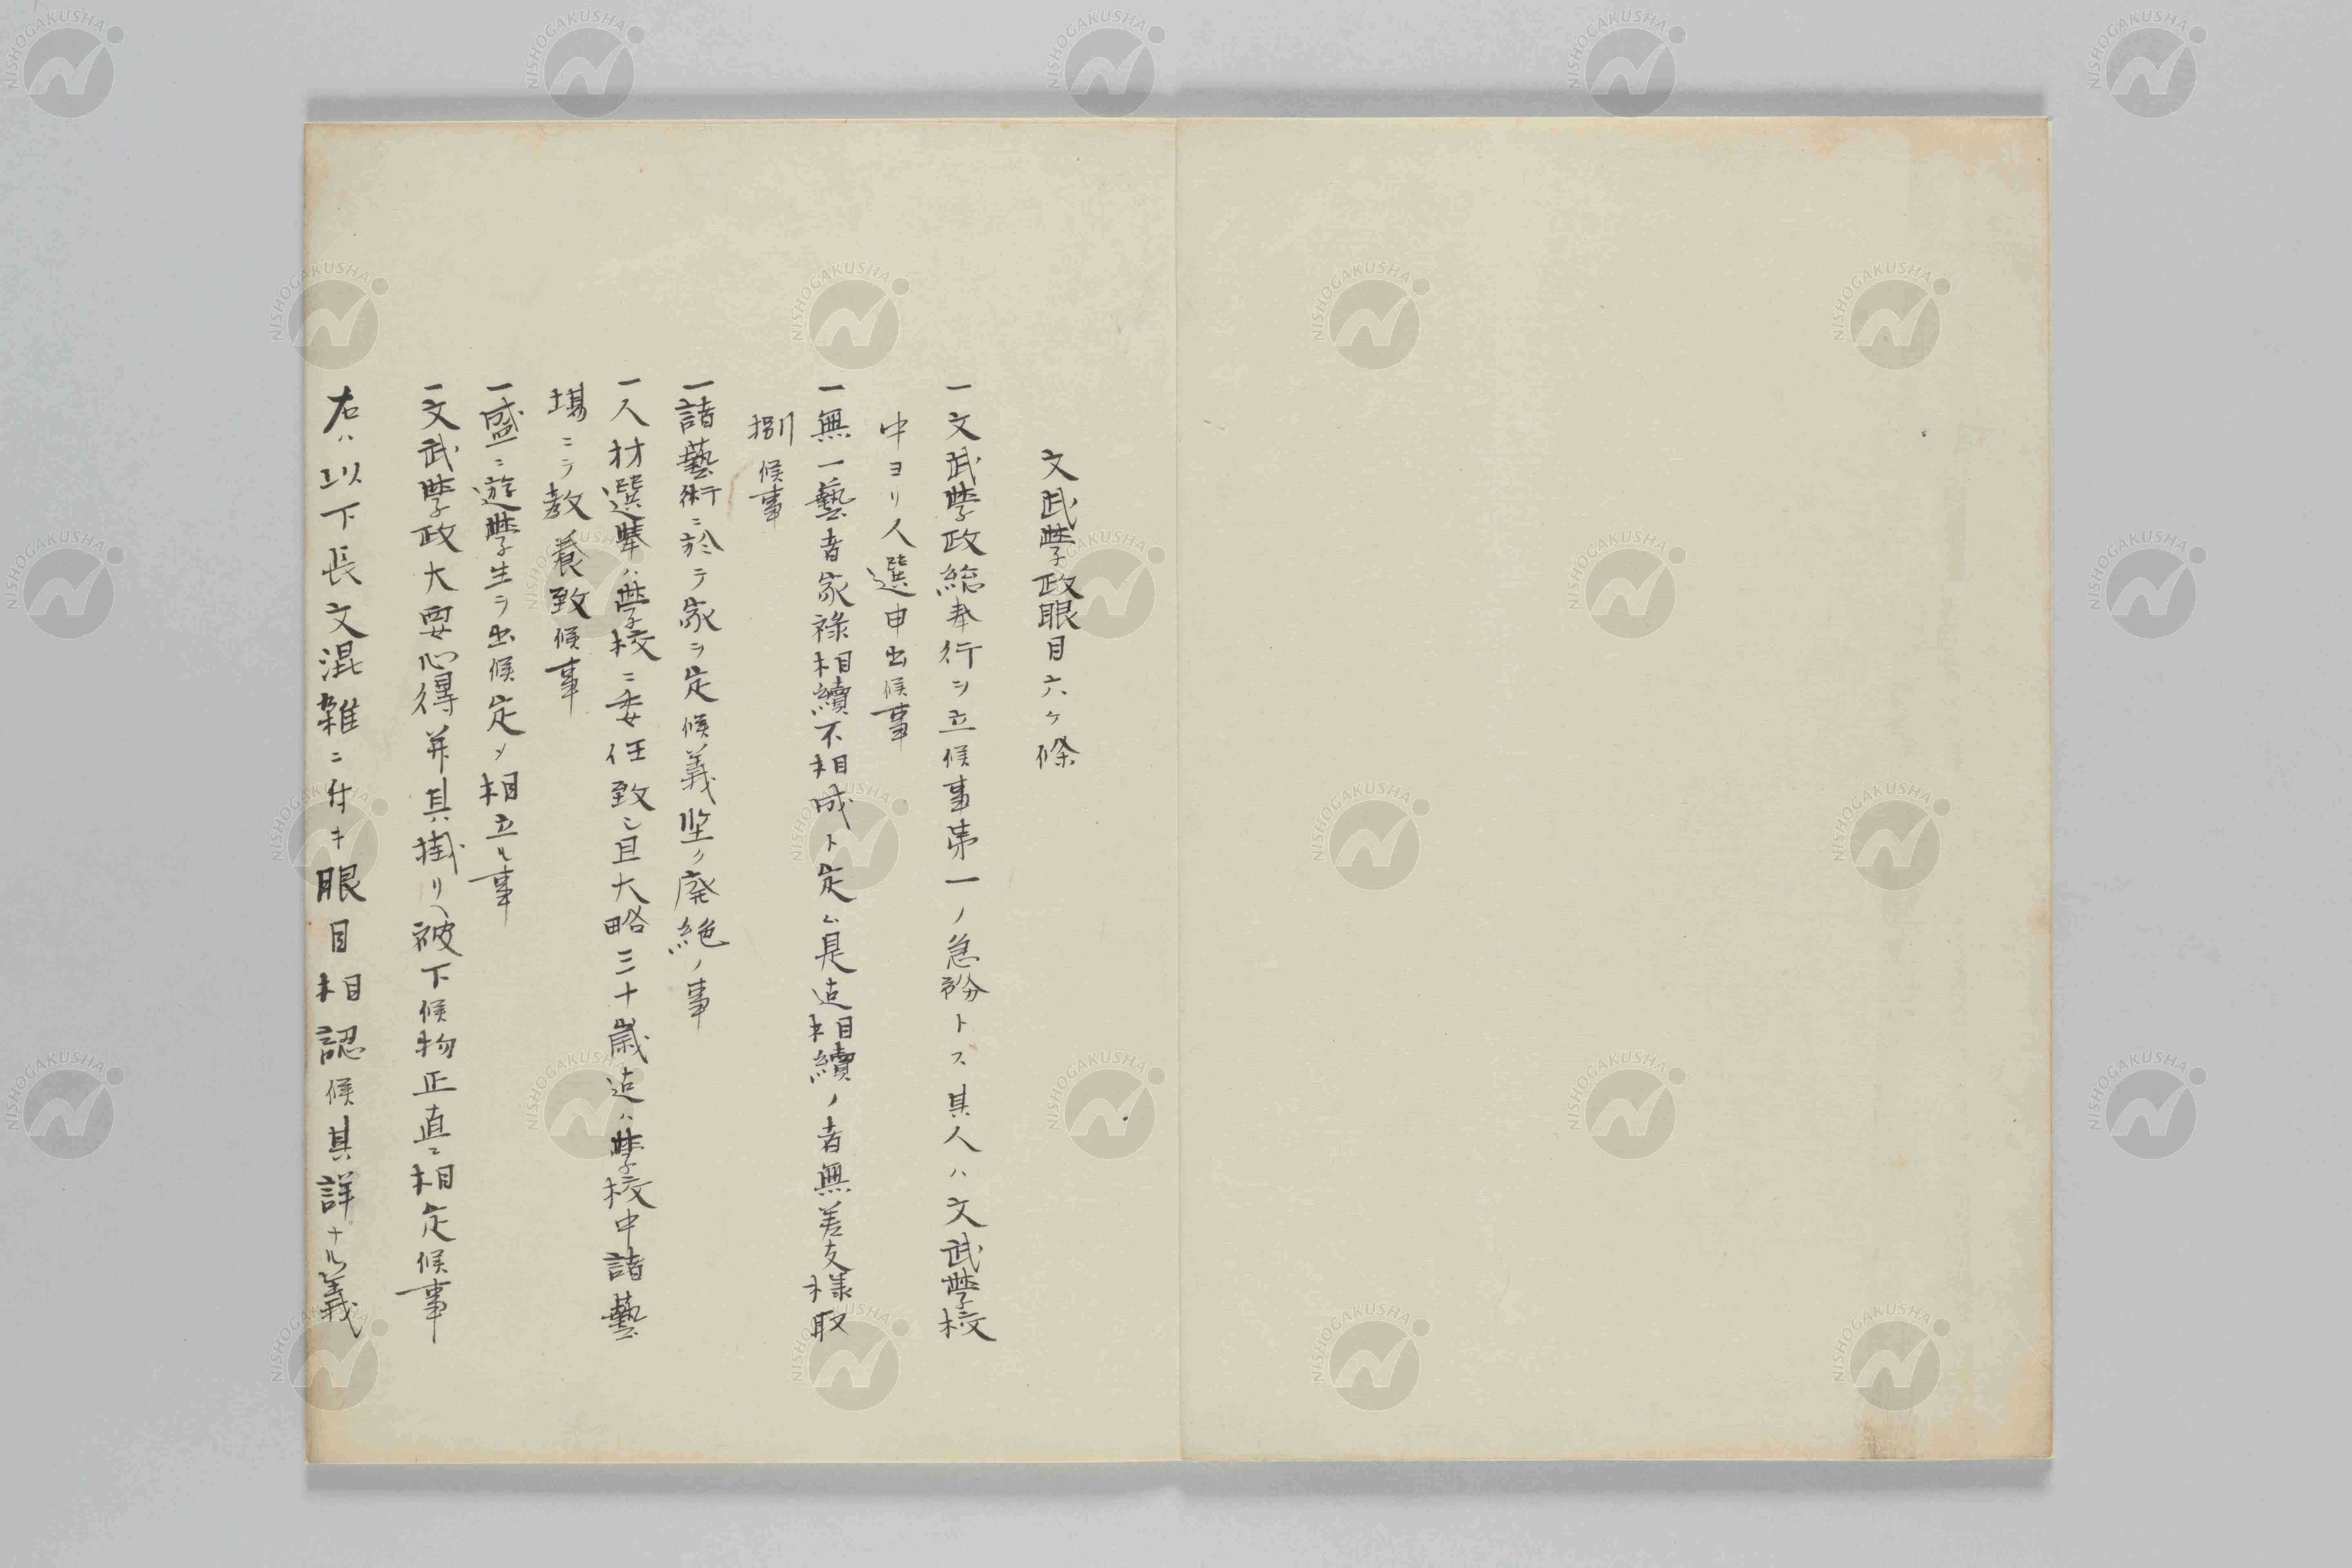 文武學政眼目六ケ條
一文武學政総奉行ヲ立候事第一ノ急務トス其人ハ文武學校
中ヨリ人選申出候事
一無一藝者家祿相續不相成ト定ム是迠相續ノ者無差支様取
捌候事
一諸藝術ニ於テ家ヲ定候義堅ク廃絶ノ事
一人材選擧ハ學校ニ委任致シ且大略三十歳迠ハ學校中諸藝
場ニテ教養致候事
一盛ニ遊學生ヲ出候定メ相立ル事
一文武學政大要心得并其掛リヘ被下候物正直ニ相定候事
右ハ以下長文混雑ニ付キ眼目相認候其詳ナル義
NISHOGAKUSHA